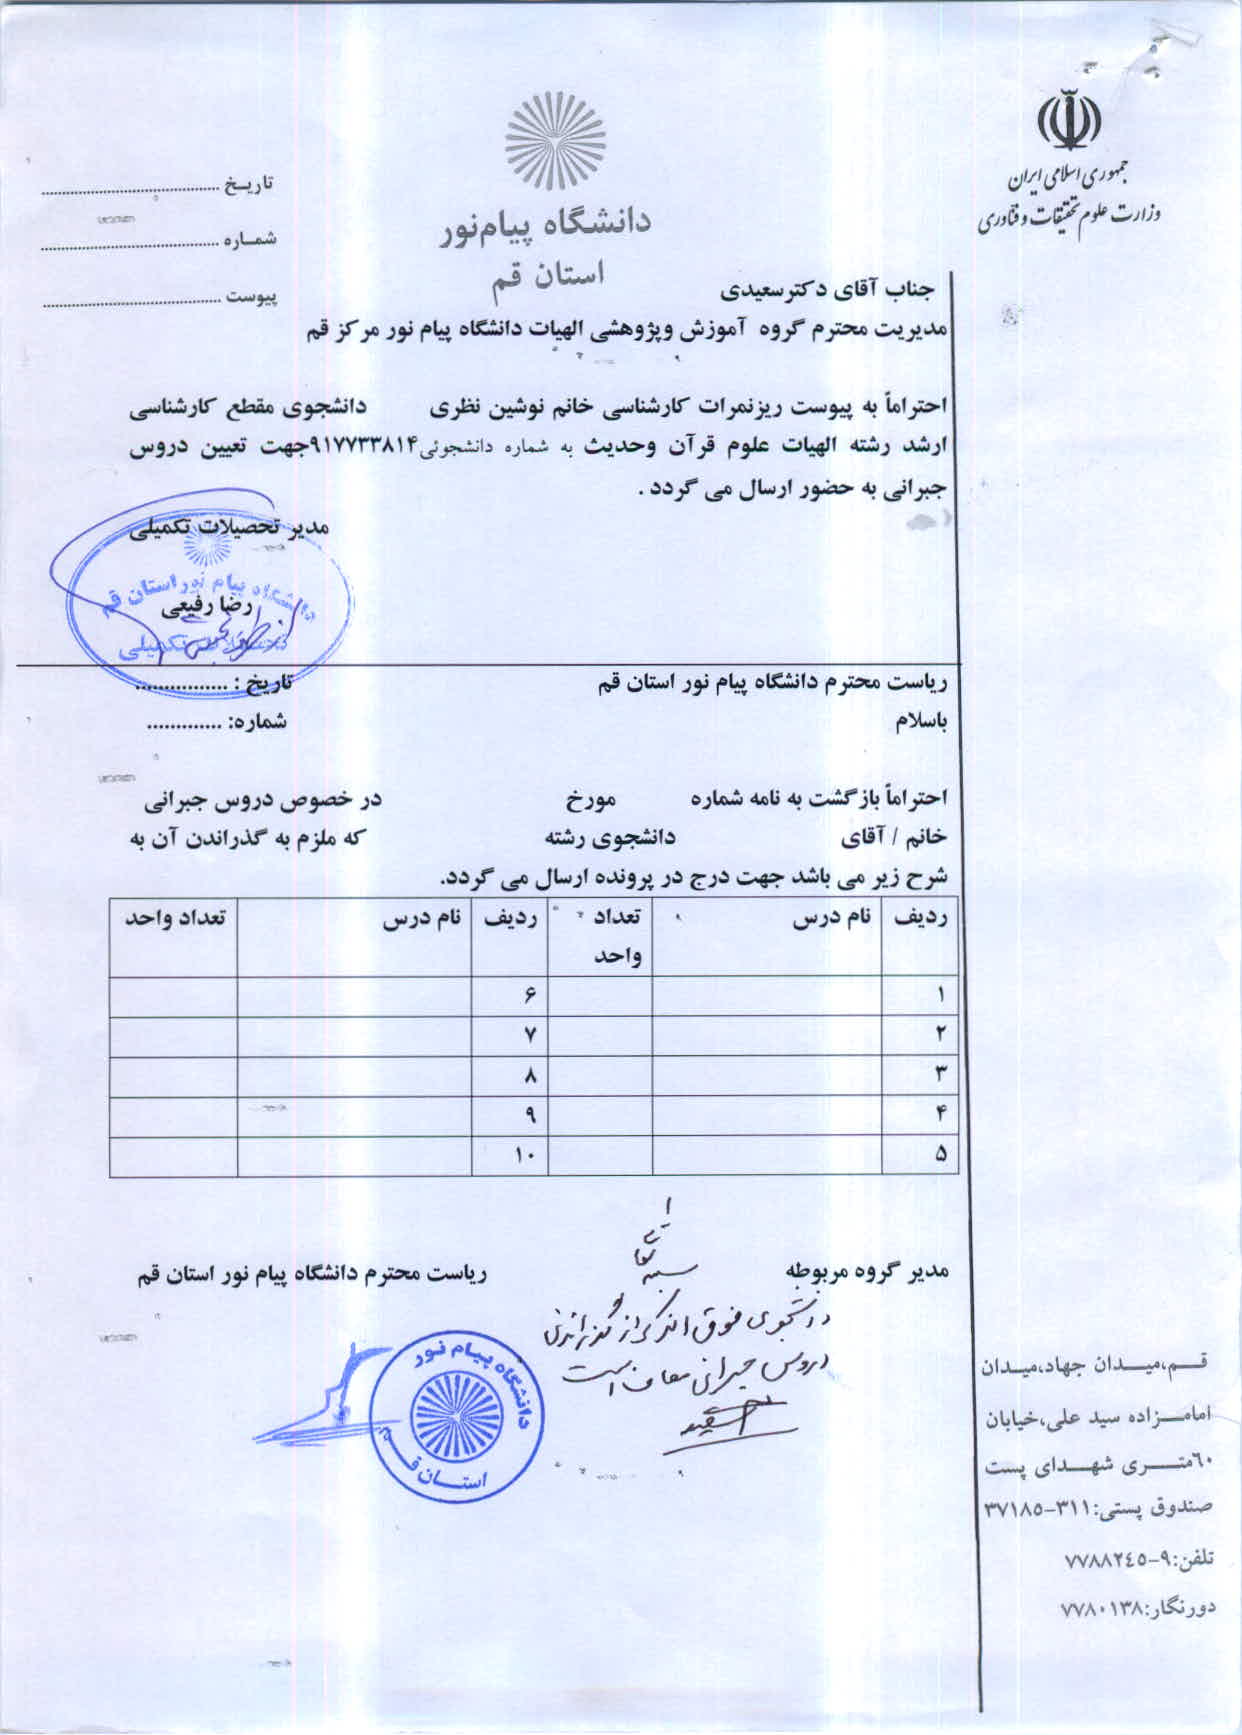 جمهوری اسلامی ایران
وزارت علوم تحقیقات و فناوری
دانشگاه پیام‌نور
استان قم
تاریـخ ............................................
شمـاره ............................................
پیوست ............................................
جناب آقای دکترسعیدی
مدیریت محترم گروه آموزش وپژوهشی الهیات دانشگاه پیام نور مرکز قم
احتراماً به پیوست ریزنمرات کارشناسی خانم نوشین نظری دانشجوی مقطع کارشناسی
ارشد رشته الهیات علوم قرآن وحدیث به شماره دانشجوئی۹۱۷۷۳۳۸۱۴جهت تعیین دروس
جبرانی به حضور ارسال می گردد .
مدیر تحصیلات تکمیلی
دانشگاه پیام نور استان قم
رضا رفیعی
تحصیلات تکمیلی
ریاست محترم دانشگاه پیام نور استان قم تاریخ : ................
باسلام شماره: .............
احتراماً بازگشت به نامه شماره مورخ در خصوص دروس جبرانی
خانم / آقای دانشجوی رشته که ملزم به گذراندن آن به
شرح زیر می باشد جهت درج در پرونده ارسال می گردد.
ردیف نام درس تعداد واحد ردیف نام درس تعداد واحد
۱ ۶
۲ ۷
۳ ۸
۴ ۹
۵ ۱۰
مدیر گروه مربوطه ریاست محترم دانشگاه پیام نور استان قم
دانشجوی فوق الذکر از گذراندن
دروس جبرانی معاف است
دانشگاه پیام نور
استـان قـم
قــم،میــدان جهاد،میـدان
امامــزاده سید علی،خیابان
٦٠متــری شهــدای پست
صندوق پستی:٣١١-٣٧١٨٥
تلفن:٩-٧٧٨٨٢٤٥
دورنگار:٧٧٨٠١٣٨